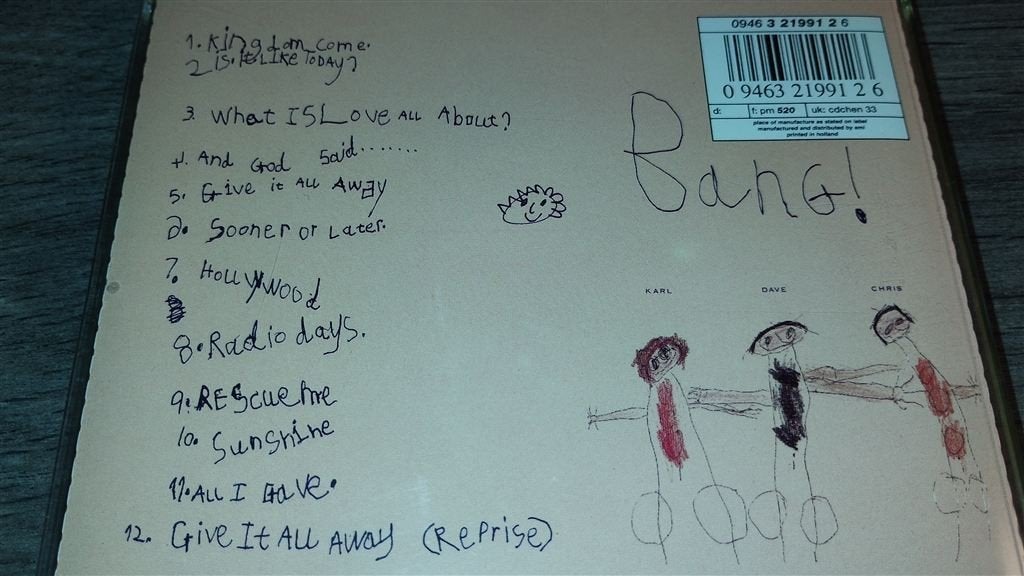 1. Kingdom come.
2 is.it LIKE TODAY?
3. What IS Love ALL About?
4. And God Said.......
5. Give it ALL AWAY
6. Sooner or Later.
7. HOLLYWOOD
8. Radio days.
9. REScue me
10. Sunshine
11. ALL I Gave.
12. Give It ALL AWAY (RePrise)
0946 3 21991 2 6
0 09463 21991 2 6
d: f: pm 520 uk: cdchen 33
place of manufacture as stated on label
manufactured and distributed by emi
printed in holland
BanG!
KARL DAVE CHRIS